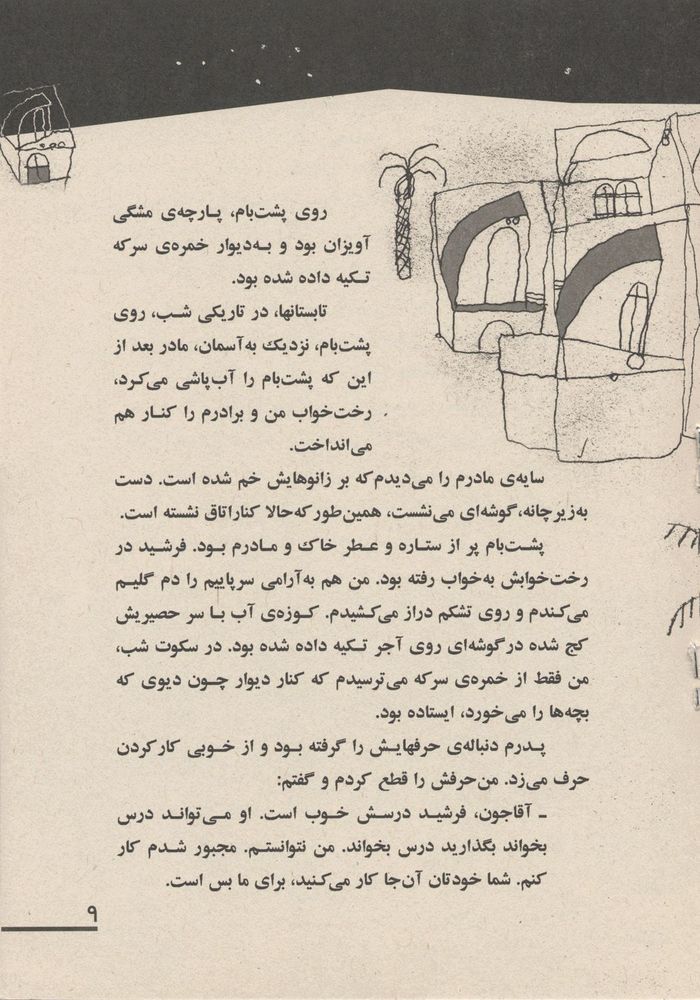 روی پشت‌بام، پارچه‌ی مشگی
آویزان بود و به‌دیوار خمره‌ی سرکه
تکیه داده شده بود.
تابستانها، در تاریکی شب، روی
پشت‌بام، نزدیک به‌آسمان، مادر بعد از
این که پشت‌بام را آب‌پاشی می‌کرد،
رخت‌خواب من و برادرم را کنار هم
می‌انداخت.
سایه‌ی مادرم را می‌دیدم‌که بر زانوهایش خم شده است. دست
به‌زیرچانه، گوشه‌ای می‌نشست، همین‌طورکه‌حالا کناراتاق نشسته است.
پشت‌بام پر از ستاره و عطر خاک و مادرم بود. فرشید در
رخت‌خوابش به‌خواب رفته بود. من هم به‌آرامی سرپاییم را دم گلیم
می‌کندم و روی تشکم دراز می‌کشیدم. کوزه‌ی آب با سر حصیریش
کج شده درگوشه‌ای روی آجر تکیه داده شده بود. در سکوت شب،
من فقط از خمره‌ی سرکه می‌ترسیدم که کنار دیوار چون دیوی که
بچه‌ها را می‌خورد، ایستاده بود.
پدرم دنباله‌ی حرفهایش را گرفته بود و از خوبی کارکردن
حرف می‌زد. من‌حرفش را قطع کردم و گفتم:
ـ آقاجون، فرشید درسش خوب است. او می‌تواند درس
بخواند بگذارید درس بخواند. من نتوانستم. مجبور شدم کار
کنم. شما خودتان آن‌جا کار می‌کنید، برای ما بس است.
۹